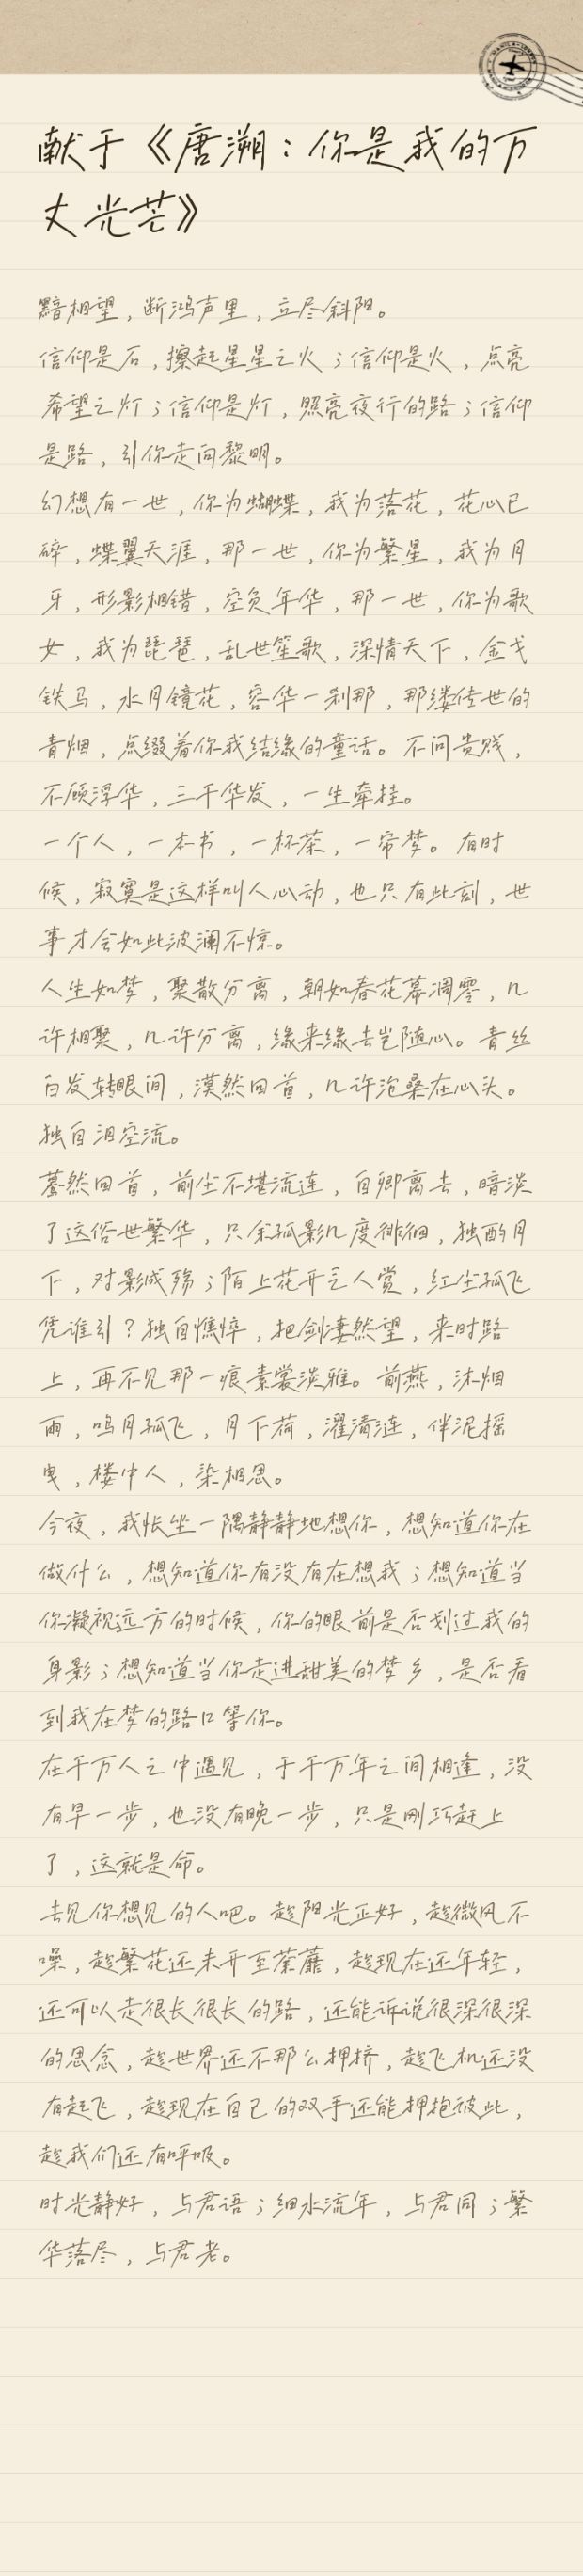 献于《唐溯：你是我的万
丈光芒》
黯相望，断鸿声里，立尽斜阳。
信仰是石，擦起星星之火；信仰是火，点亮
希望之灯；信仰是灯，照亮夜行的路；信仰
是路，引你走向黎明。
幻想有一世，你为蝴蝶，我为落花，花心已
碎，蝶翼天涯，那一世，你为繁星，我为月
牙，形影相错，空负年华，那一世，你为歌
女，我为琵琶，乱世笙歌，深情天下，金戈
铁马，水月镜花，容华一刹那，那缕传世的
青烟，点缀着你我结缘的童话。不问贵贱，
不顾浮华，三千华发，一生牵挂。
一个人，一本书，一杯茶，一帘梦。有时
候，寂寞是这样叫人心动，也只有此刻，世
事才会如此波澜不惊。
人生如梦，聚散分离，朝如春花暮凋零，几
许相聚，几许分离，缘来缘去岂随心。青丝
白发转眼间，漠然回首，几许沧桑在心头。
独自泪空流。
蓦然回首，前尘不堪流连，自卿离去，暗淡
了这俗世繁华，只余孤影几度徘徊，独酌月
下，对影成殇；陌上花开乏人赏，红尘孤飞
凭谁引？独自憔悴，把剑凄然望，来时路
上，再不见那一痕素裳淡雅。前燕，沐烟
雨，鸣月孤飞，月下荷，濯清涟，伴泥摇
曳，楼中人，染相思。
今夜，我怅坐一隅静静地想你，想知道你在
做什么，想知道你有没有在想我；想知道当
你凝视远方的时候，你的眼前是否划过我的
身影；想知道当你走进甜美的梦乡，是否看
到我在梦的路口等你。
在千万人之中遇见，于千万年之间相逢，没
有早一步，也没有晚一步，只是刚巧赶上
了，这就是命。
去见你想见的人吧。趁阳光正好，趁微风不
噪，趁繁花还未开至荼蘼，趁现在还年轻，
还可以走很长很长的路，还能诉说很深很深
的思念，趁世界还不那么拥挤，趁飞机还没
有起飞，趁现在自己的双手还能拥抱彼此，
趁我们还有呼吸。
时光静好，与君语；细水流年，与君同；繁
华落尽，与君老。